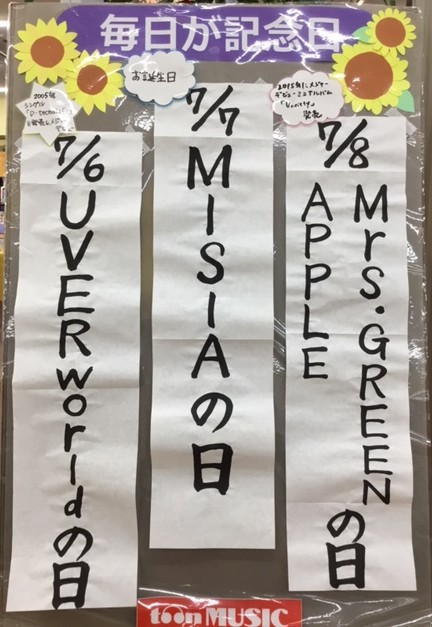 毎日が記念日
2005年
シングル
お誕生日
2015年にメジャー
デビューミニアルバム
「Variety」
発売
7/6
UVERworldの日
7/7
MISIAの日
7/8
Mrs.GREEN
APPLE
の日
toon MUSIC